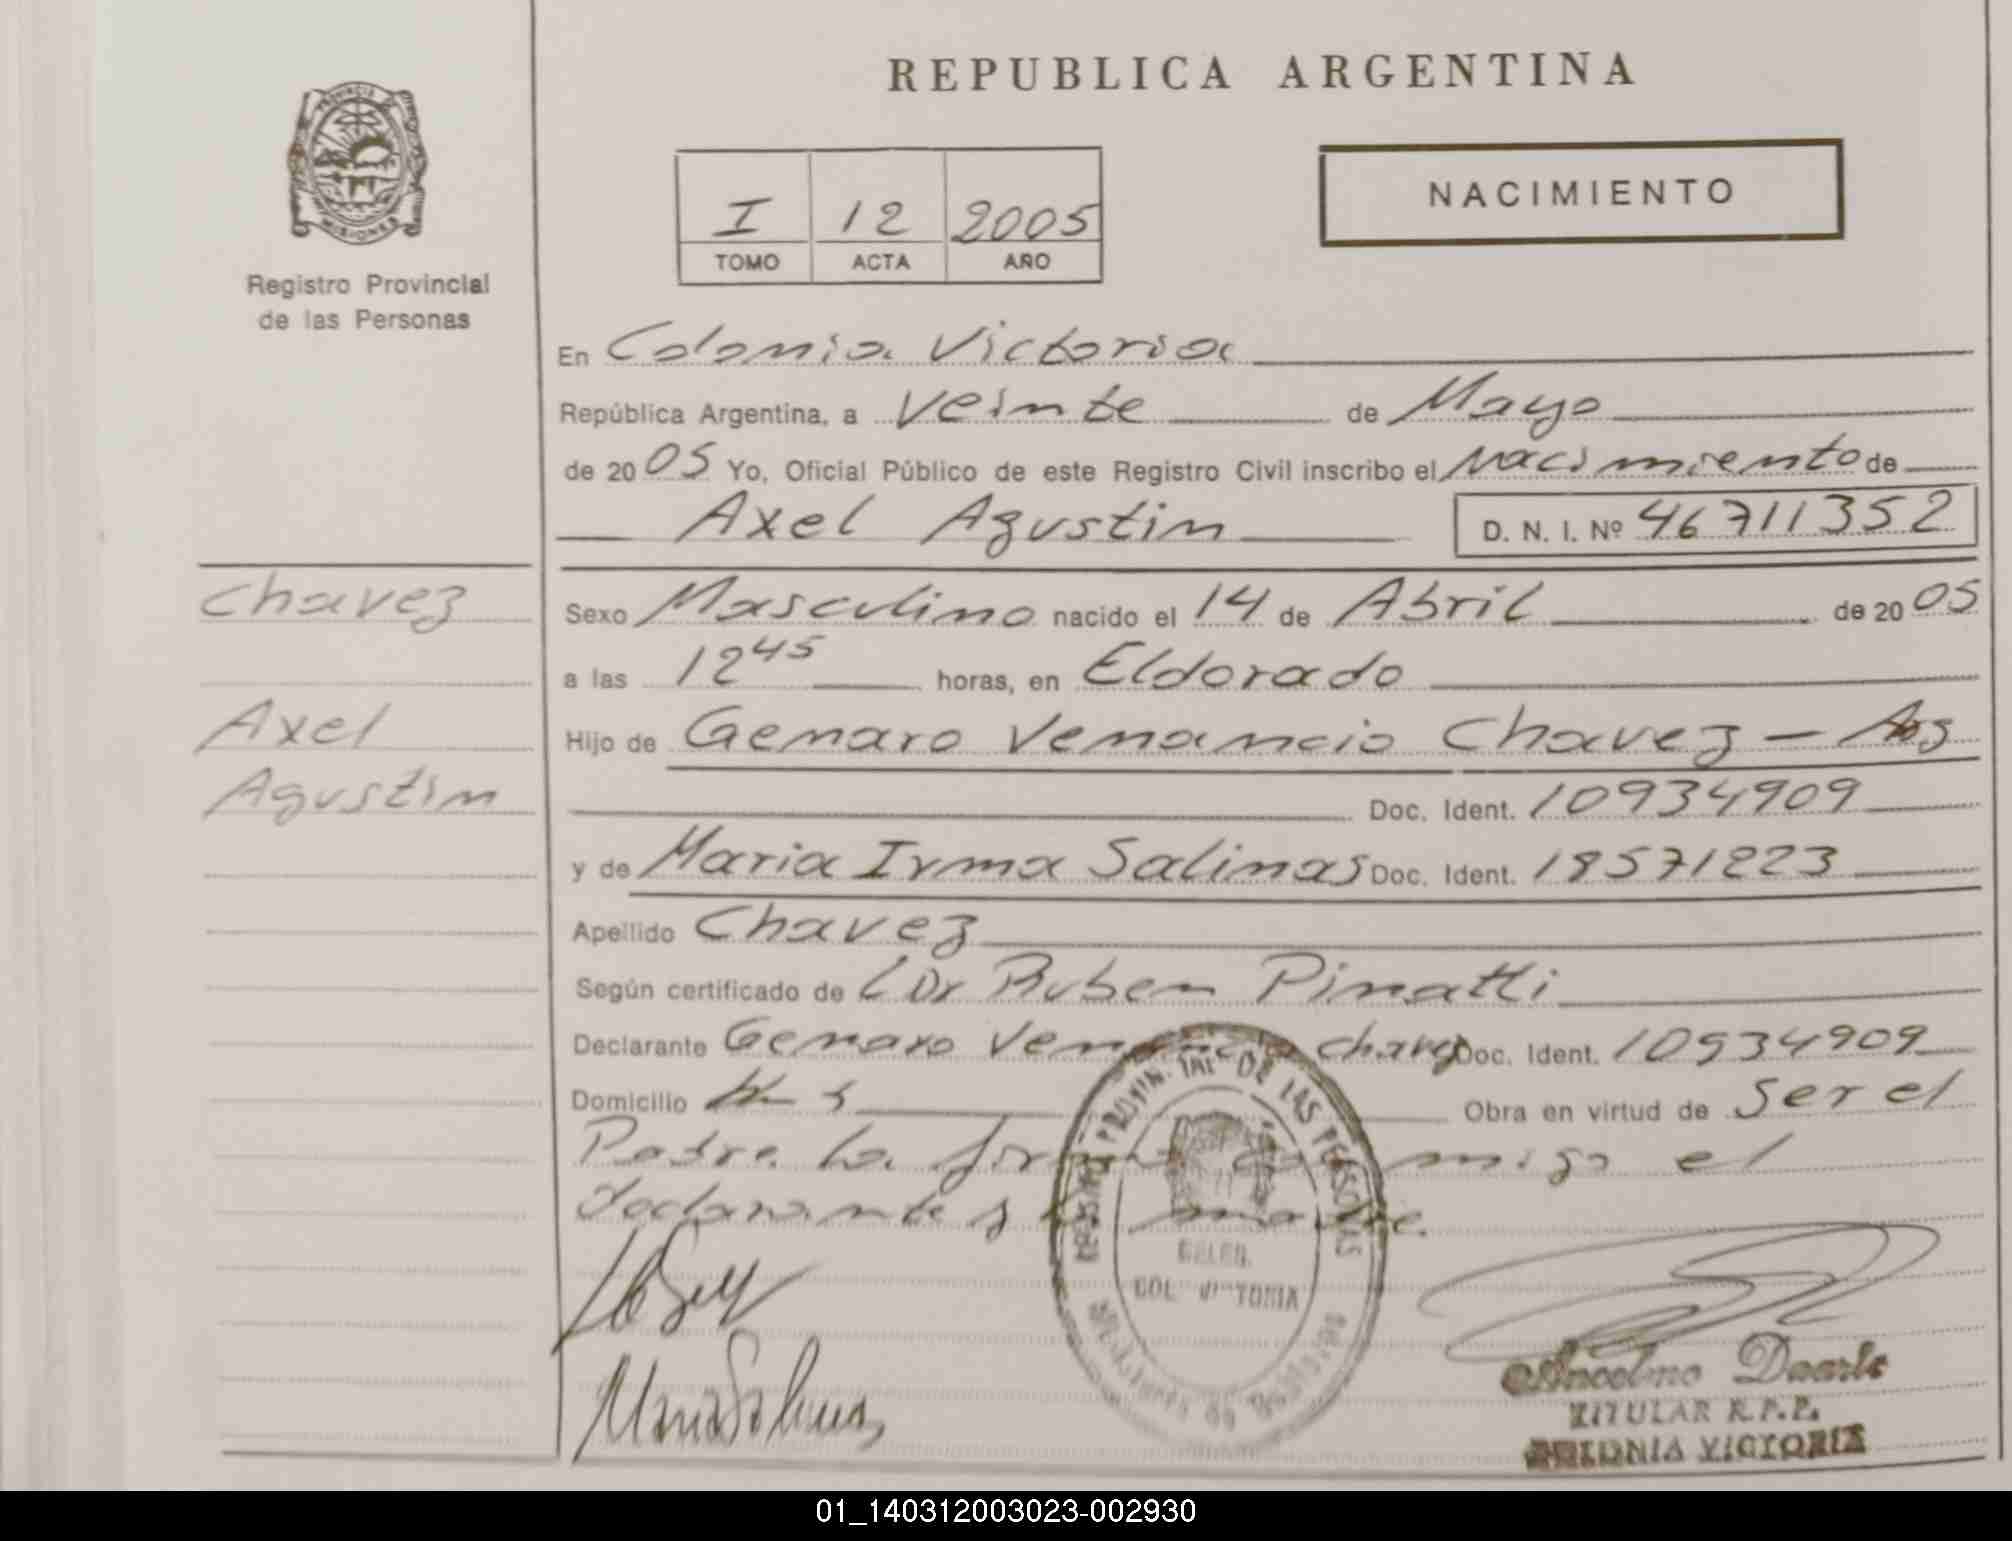 REPUBLICA ARGENTINA
PROVINCIA DE MISIONES
Registro Provincial
de las Personas
I 12 2005
TOMO ACTA AÑO
NACIMIENTO
En Colonia Victoria
República Argentina, a Veinte de Mayo
de 2005 Yo, Oficial Público de este Registro Civil inscribo el Nacimiento de
Axel Agustin D. N. I. Nº 46711352
Chavez
Axel
Agustin
Sexo Masculino nacido el 14 de Abril de 2005
a las 12 45 horas, en Eldorado
Hijo de Genaro Venancio Chavez — Arg
Doc. Ident. 10934909
y de Maria Irma Salinas Doc. Ident. 18571223
Apellido Chavez
Según certificado de Dr Ruben Pinatti
Declarante Genaro Venancio Chavez Doc. Ident. 10934909
Domicilio Obra en virtud de Ser el
Padre. La el
declarante y madre.
REGISTRO PROVINCIAL DE LAS PERSONAS
DELEG.
COL VICTORIA
Maria Salinas
Ancelmo Duarte
TITULAR R.P.P.
COLONIA VICTORIA
01_140312003023-002930